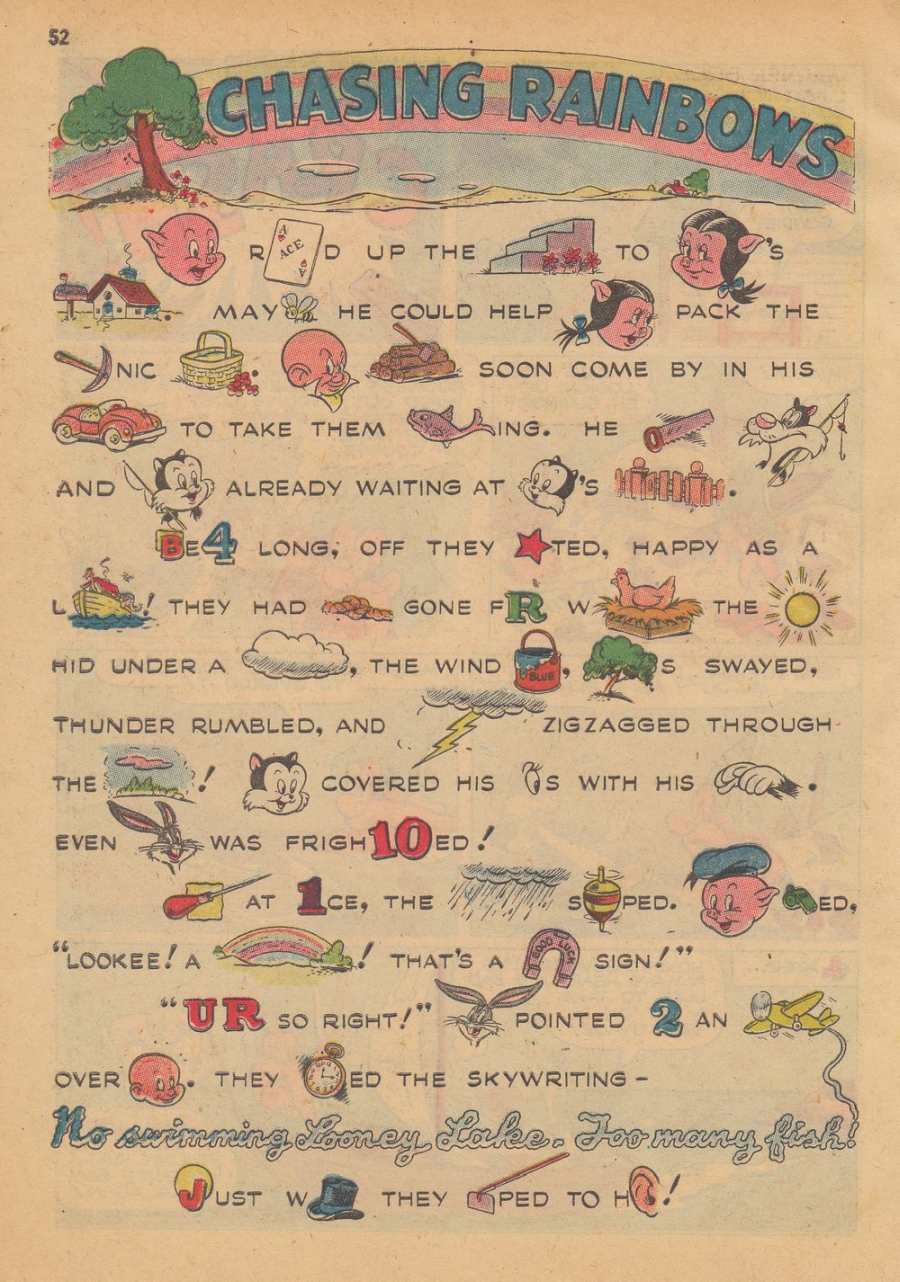 52
CHASING RAINBOWS
R A ACE A D UP THE TO 'S
. MAY HE COULD HELP PACK THE
NIC . SOON COME BY IN HIS
TO TAKE THEM ING. HE
AND ALREADY WAITING AT 'S .
BE4 LONG, OFF THEY TED, HAPPY AS A
L ! THEY HAD GONE F R W THE
HID UNDER A , THE WIND BLUE, S SWAYED,
THUNDER RUMBLED, AND ZIGZAGGED THROUGH
THE ! COVERED HIS S WITH HIS .
EVEN WAS FRIGH10ED!
AT 1CE, THE S PED. ED,
"LOOKEE! A ! THAT'S A GOOD LUCK SIGN!"
"UR SO RIGHT!" POINTED 2 AN
OVER . THEY ED THE SKYWRITING -
No swimming Looney Lake. Too many fish!
JUST W THEY PED TO H !